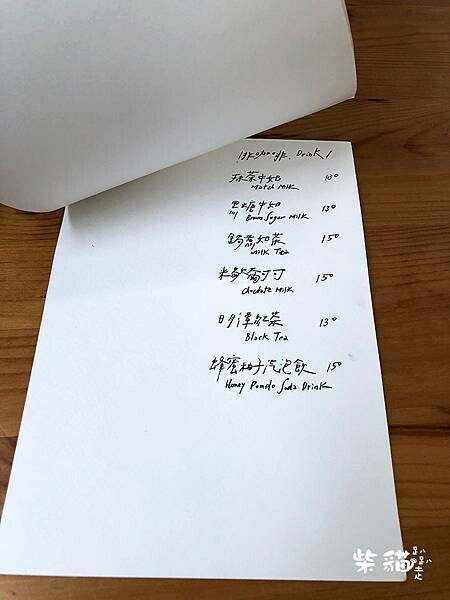 Drink /
抹茶牛奶 130
Match Milk
黑糖牛奶 130
Brown Sugar Milk
鍋煮奶茶 150
Milk Tea
150
Chocolate Milk
日月潭紅茶 130
Black Tea
蜂蜜柚子汽泡飲 150
Honey Pomelo Soda Drink
柴貓